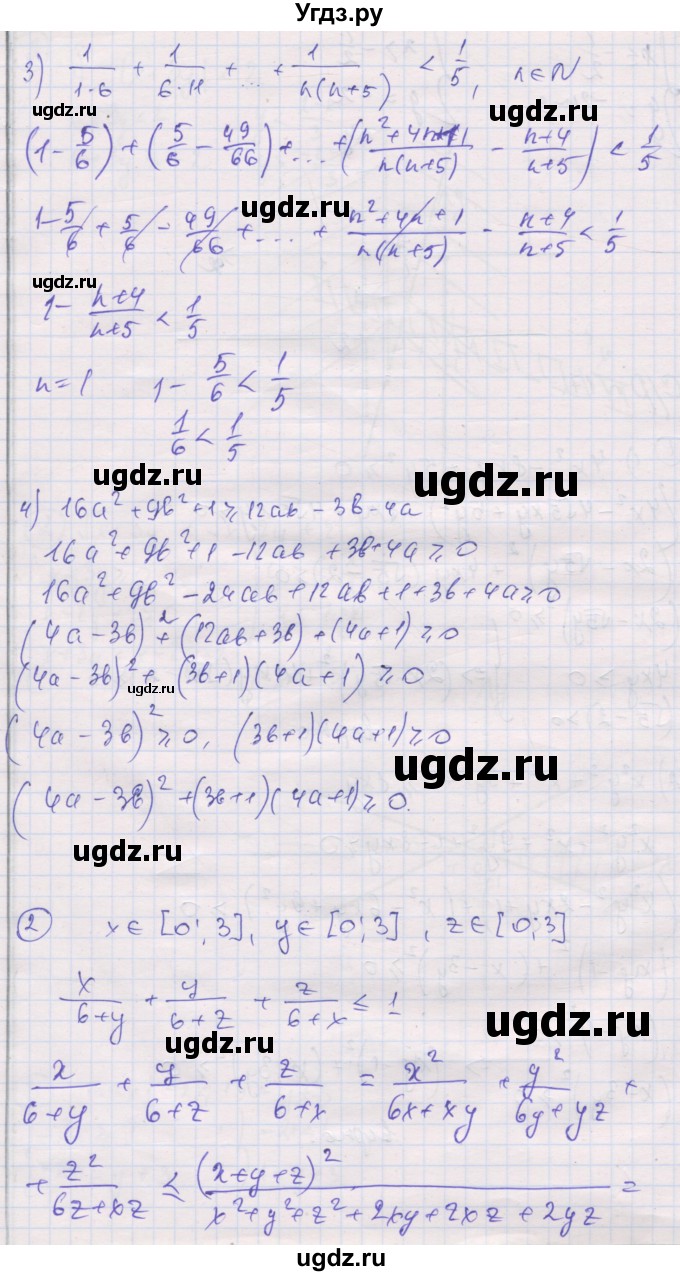 Угдз.ру
3) 1/(1·6) + 1/(6·11) + ... + 1/(n(n+5)) < 1/5, n∈N
ugdz.ru
(1 - 5/6) + (5/6 - 49/66) + ... + ((n²+4n+1)/(n(n+5)) - (n+4)/(n+5)) < 1/5
ugdz.ru
1 - 5/6 + 5/6 - 49/66 + ... + (n²+4n+1)/(n(n+5)) - (n+4)/(n+5) < 1/5
ugdz.ru
1 - (n+4)/(n+5) < 1/5
n=1 1 - 5/6 < 1/5
1/6 < 1/5
ugdz.ru
ugdz.ru
4) 16a²+9b²+1 ⩾ 12ab - 3b - 4a
16a²+9b²+1 - 12ab + 3b + 4a ⩾ 0
16a²+9b² - 24ab + 12ab + 1 + 3b + 4a ⩾ 0
(4a - 3b)² + (12ab + 3b) + (4a+1) ⩾ 0
(4a - 3b)² + (3b+1)(4a+1) ⩾ 0
ugdz.ru
(4a - 3b)² ⩾ 0, (3b+1)(4a+1) ⩾ 0
ugdz.ru
(4a - 3b)² + (3b+1)(4a+1) ⩾ 0.
ugdz.ru
2 x∈[0;3], y∈[0;3], z∈[0;3]
x/(6+y) + y/(6+z) + z/(6+x) ≤ 1
ugdz.ru
ugdz.ru
x/(6+y) + y/(6+z) + z/(6+x) = x²/(6x+xy) + y²/(6y+yz) +
+ z²/(6z+xz) ≤ (x+y+z)²/(x²+y²+z²+2xy+2xz+2yz) =
ugdz.ru
ugdz.ru